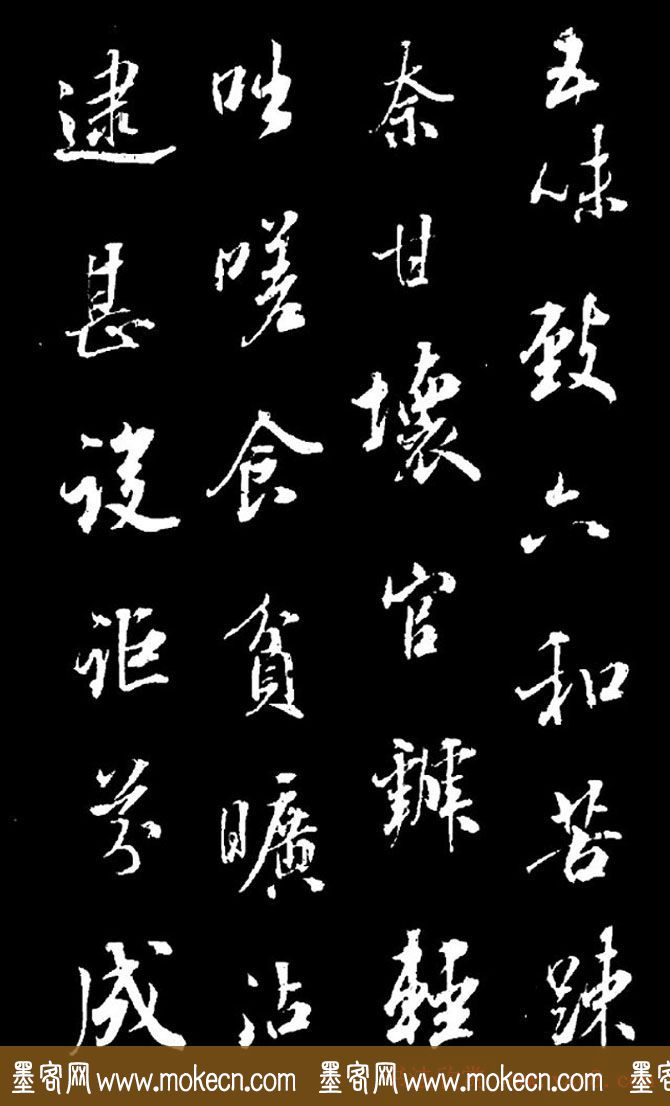 五味致六和苦踈
奈甘壞官
咄嗟食貧曠沾
逮甚設詎芬成
墨客网 www.mokecn.com 墨客网 www.mokecn.com 墨客